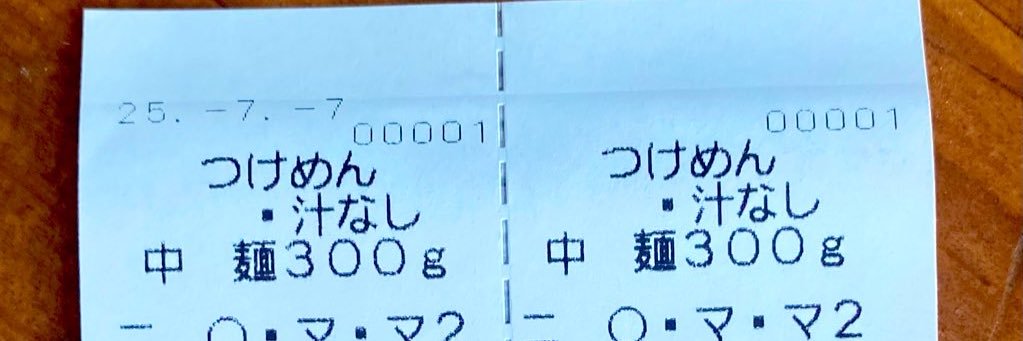 25.-7.-7
00001
つけめん
・汁なし
中 麺300g
00001
つけめん
・汁なし
中 麺300g